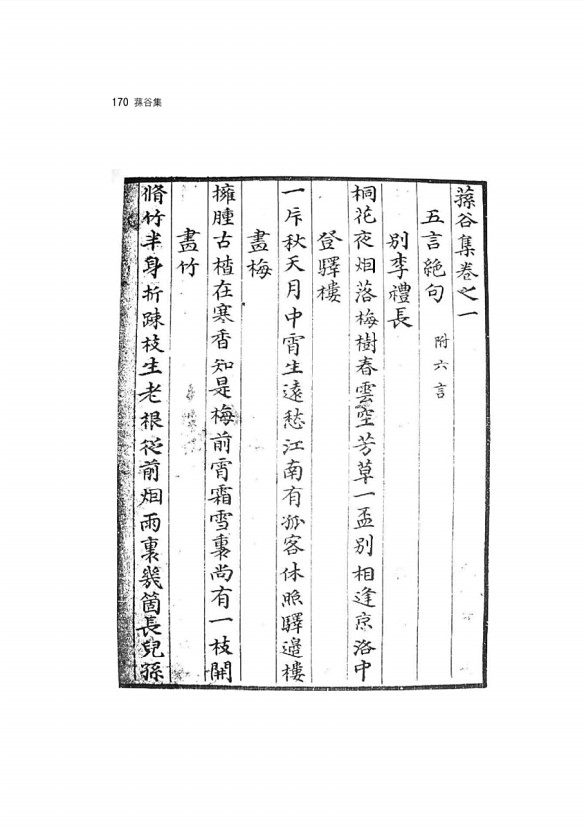 170 蓀谷集
蓀谷集卷之一
五言絶句 附六言
別李禮長
桐花夜烟落梅樹春雲空芳草一盃別相逢京洛中
登驛樓
一片秋天月中宵生遠愁江南有孤客休照驛邉樓
畫梅
擁腫古楂在寒香知是梅前宵霜雪裏尚有一枝開
畫竹
脩竹半身折踈枝生老根從前烟雨裏幾箇長兒孫